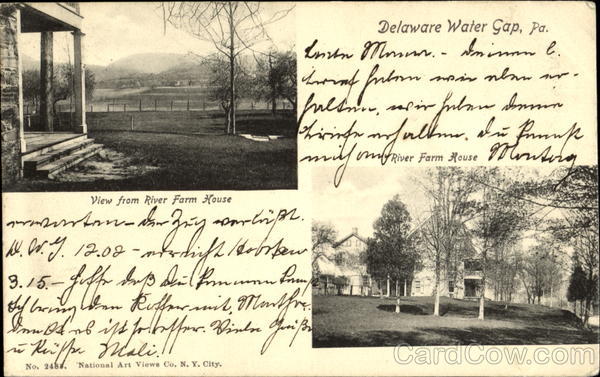 Delaware Water Gap, Pa.
Liebe Mama. - deinen l.
Brief haben wir eben er-
halten, wir haben deine
Briefe erhalten. du kannst
mich am Montag
River Farm House
View from River Farm House
erwarten - der Zug verläßt
D. W. G. 12.02 - erreicht Hoboken
3.15. - hoffe daß du kommen kannst
bring den Koffer mit.
denkt es ist besser. Viele Grüße
u Küsse. Mali.
No. 2484. National Art Views Co. N. Y. City.
CardCow.com